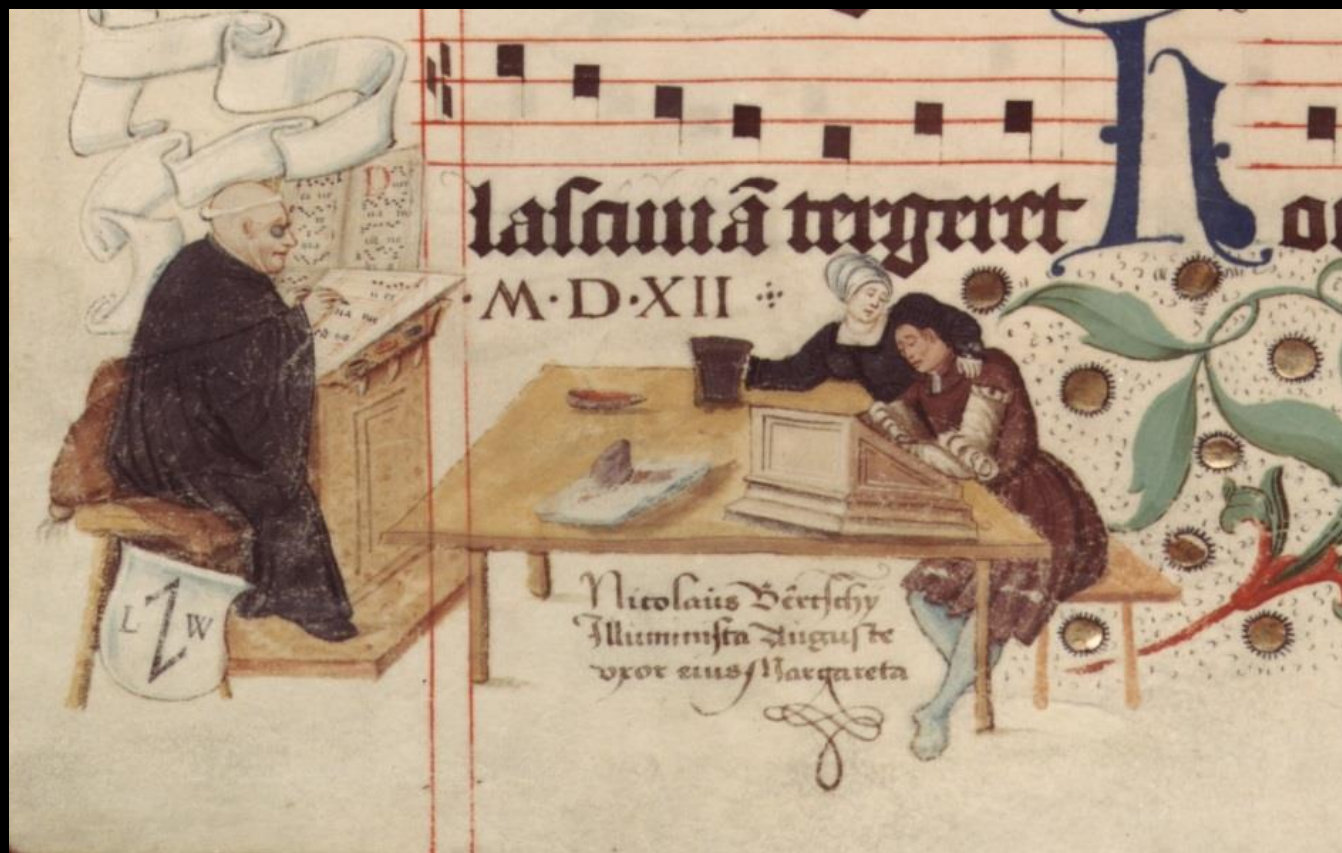 lasciuiã tergeret H
·M·D·XII
L Z W
Nicolaus Bertschy
Illuminista Auguste
vxor eius Margareta